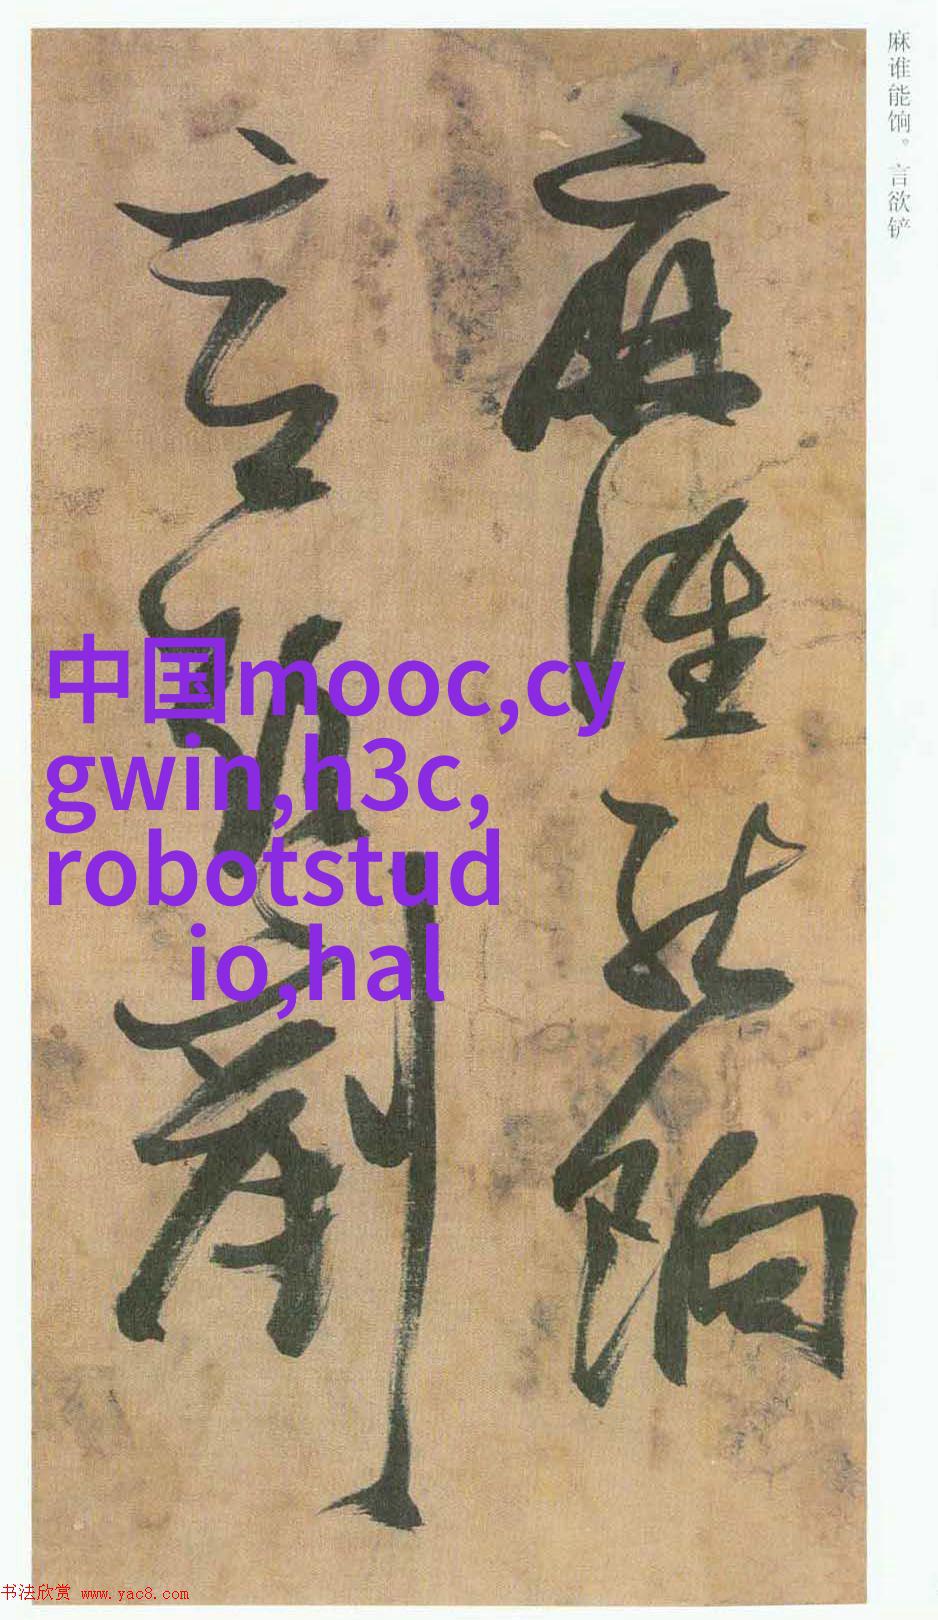 麻谁能饷。言欲铲
麻谁能饷
言欲剷
中国mooc,cy
gwin,h3c,
robotstud
io,hal
书法欣赏 www.yac8.com